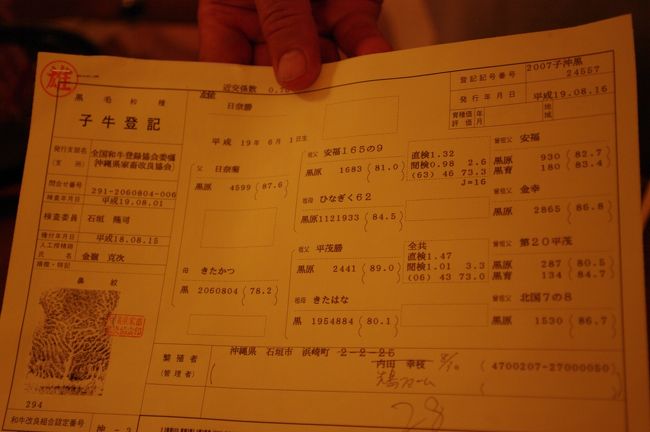 雄
黒毛和種
子牛登記
名号
日奈勝
近交係数
平成 19年 6月 1日生
登記記号番号
2007子沖黒
24557
発行年月日
平成19.08.16
育種価
評価
年
月
地
域
発行支部名
(支所)
全国和牛登録協会委嘱
沖縄県家畜改良協会
問合せ番号
291-2060804-006
検査年月日
平成19.08.01
検査委員
石垣 隆司
種付年月日
平成18.08.15
人工授精師
氏名
金嶺 克次
損徴・特記
鼻紋
294
和牛改良組合認定番号
父
日奈菊
黒原 4599 (87.6)
母
きたかつ
黒 2060804 (78.2)
祖父
安福165の9
黒原 1683 (81.0)
直検1.32
間検0.98 2.6
(63) 46 73.3
J=16
祖母
ひなぎく62
黒原1121933 (84.5)
祖父
平茂勝
黒原 2441 (89.0)
全共
直検1.47
間検1.01 3.3
(06) 43 73.0
祖母
きたはな
黒 1954884 (80.1)
曾祖父
安福
黒原 930 (82.7)
黒育 180 (83.4)
曾祖父
金幸
黒原 2865 (86.8)
曾祖父
第20平茂
黒原 287 (80.5)
黒育 134 (84.7)
曾祖父
北国7の8
黒原 1530 (86.7)
繁殖者
(管理者)
沖縄県 石垣市 浜崎町 2-2-25
内田 幸枝
(4700207-27000050)
28